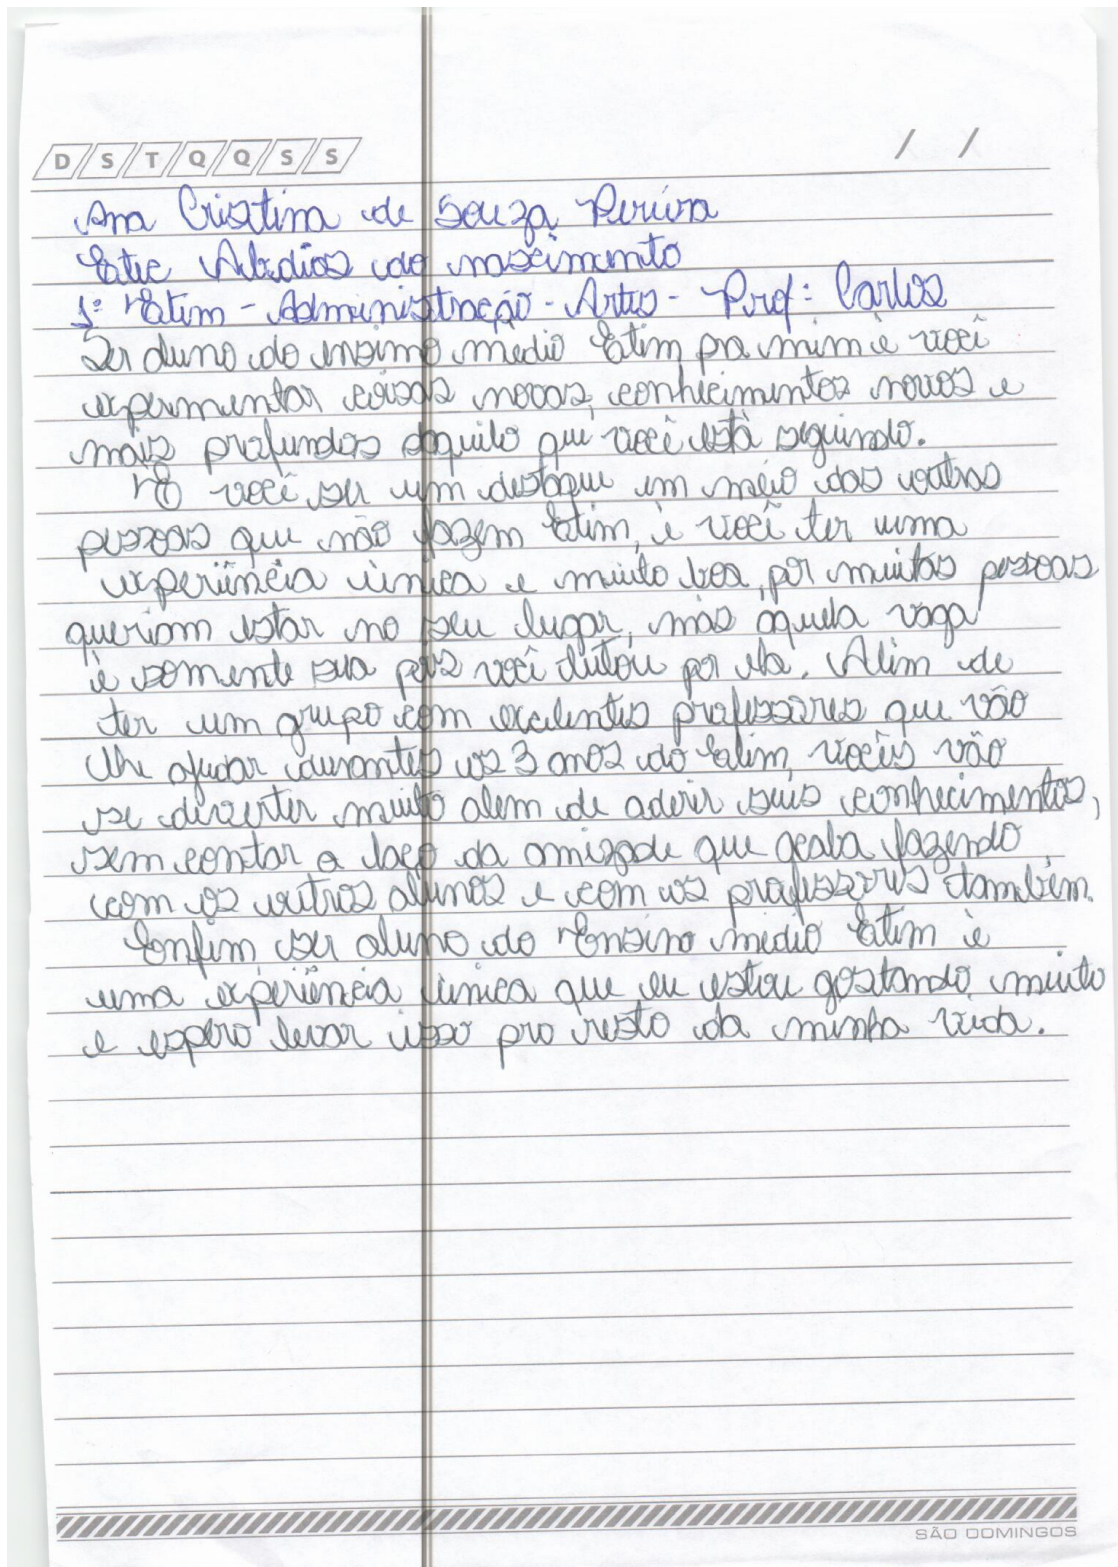 D S T Q Q S S / /
Ana Cristina de Souza Pereira
Etec Abdias do nascimento
1º Etim - Administração - Artes - Prof: Carlos
Ser aluno do ensino medio Etim pra mim è você
experimentar coisas novas, conhecimentos novos e
mais profundos daquilo que você está seguindo.
È você ser um destaque em meio das outras
pessoas que não fazem Etim, è você ter uma
experiência única e muito boa, por muitas pessoas
queriam estar no seu lugar, mas aquela vaga
è somente sua pois você lutou por ela. Alim de
ter um grupo com excelentes professores que vão
lhe ajudar durantes os 3 anos do Etim, vocês vão
se diverter muito alem de aderir seus conhecimentos,
sem contar o laço da amizade que acaba fazendo
com os outros alunos e com os professores também.
Enfim ser aluno do Ensino médio Etim è
uma experiência única que eu estou gostando muito
e espero levar isso pro resto da minha vida.
SÃO DOMINGOS